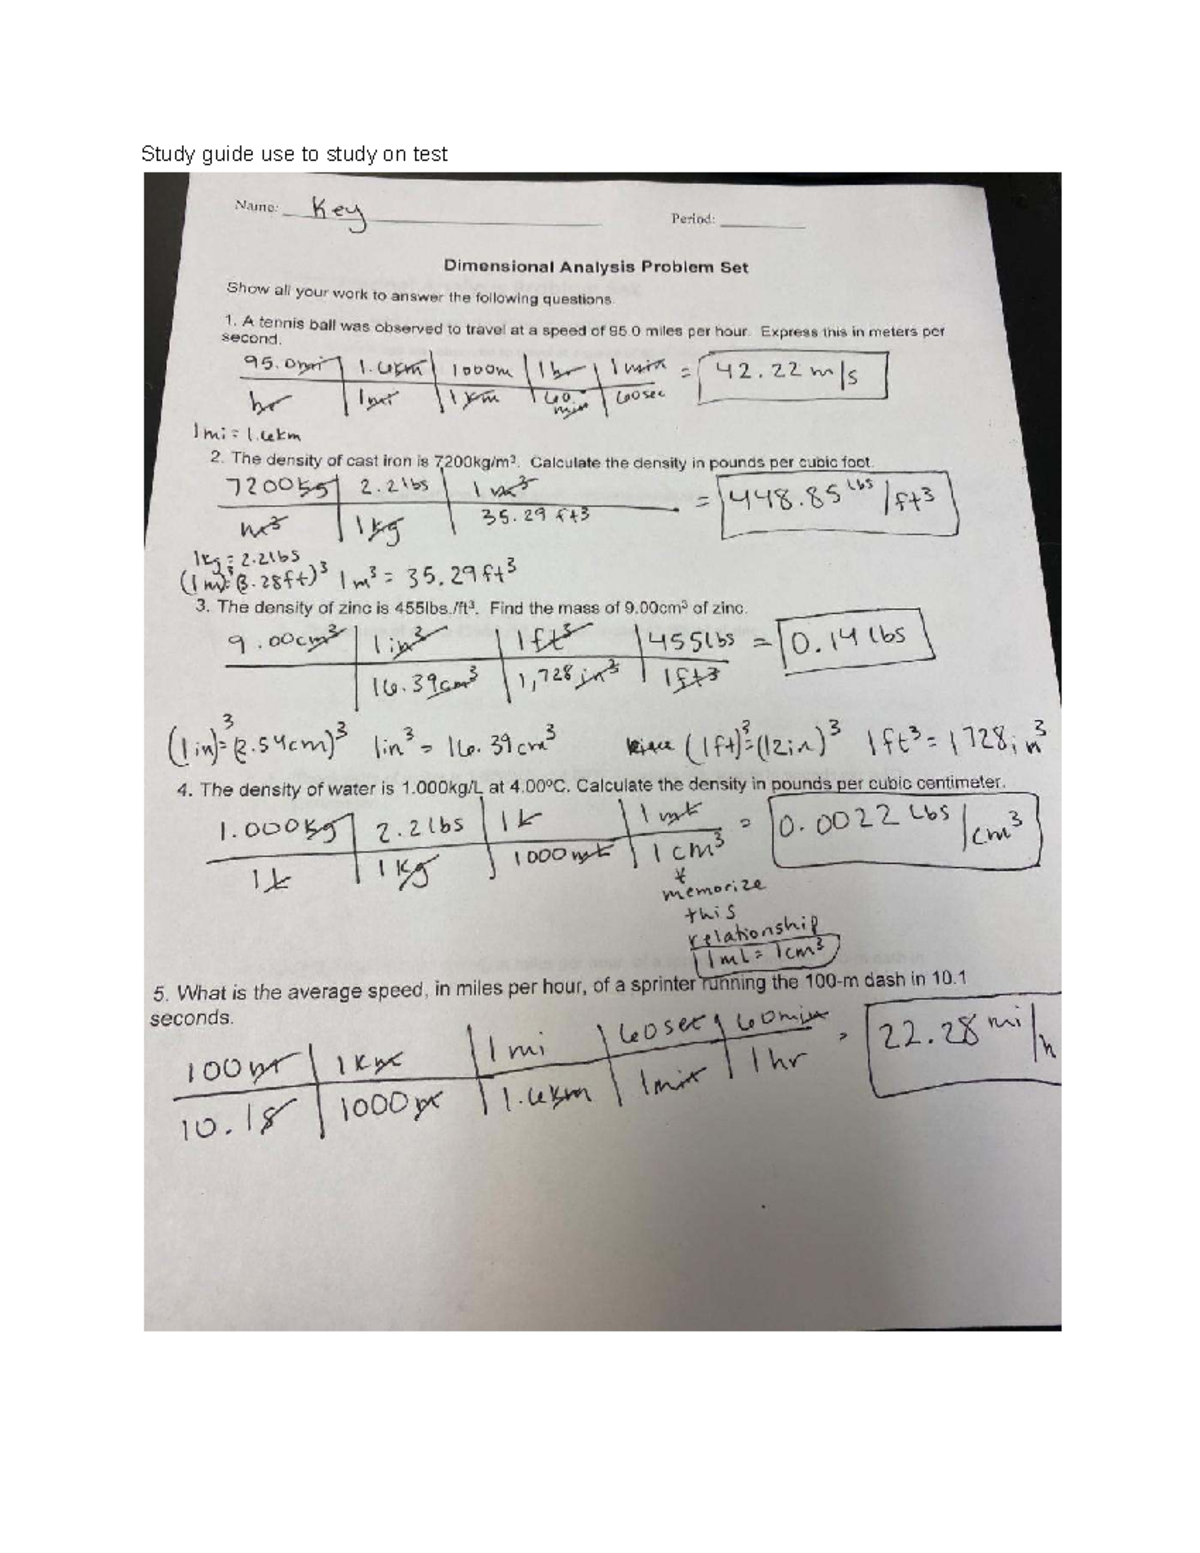 Study guide use to study on test
Name: Key Period:
Dimensional Analysis Problem Set
Show all your work to answer the following questions.
1. A tennis ball was observed to travel at a speed of 95.0 miles per hour. Express this in meters per
second.
95.0mi | 1.6km | 1000m | 1hr | 1min = 42.22 m/s
hr | 1mi | 1km | 60 min | 60sec
1mi = 1.6km
2. The density of cast iron is 7200kg/m³. Calculate the density in pounds per cubic foot.
7200kg | 2.2lbs | 1m³ = 448.85 lbs/ft³
m³ | 1kg | 35.29 ft³
1kg = 2.2lbs
(1m)³=(3.28ft)³ 1m³ = 35.29ft³
3. The density of zinc is 455lbs./ft³. Find the mass of 9.00cm³ of zinc.
9.00cm³ | 1in³ | 1ft³ | 455lbs = 0.14 lbs
16.39cm³ | 1,728in³ | 1ft³
(1in)³=(2.54cm)³ 1in³ = 16.39cm³ (1ft)³=(12in)³ 1ft³ = 1728in³
4. The density of water is 1.000kg/L at 4.00ºC. Calculate the density in pounds per cubic centimeter.
1.000kg | 2.2lbs | 1L | 1mL = 0.0022 lbs/cm³
1L | 1kg | 1000mL | 1cm³
*
memorize
this
relationship
1mL = 1cm³
5. What is the average speed, in miles per hour, of a sprinter running the 100-m dash in 10.1
seconds.
100m | 1km | 1mi | 60sec | 60min = 22.28 mi/h
10.1s | 1000m | 1.6km | 1min | 1hr